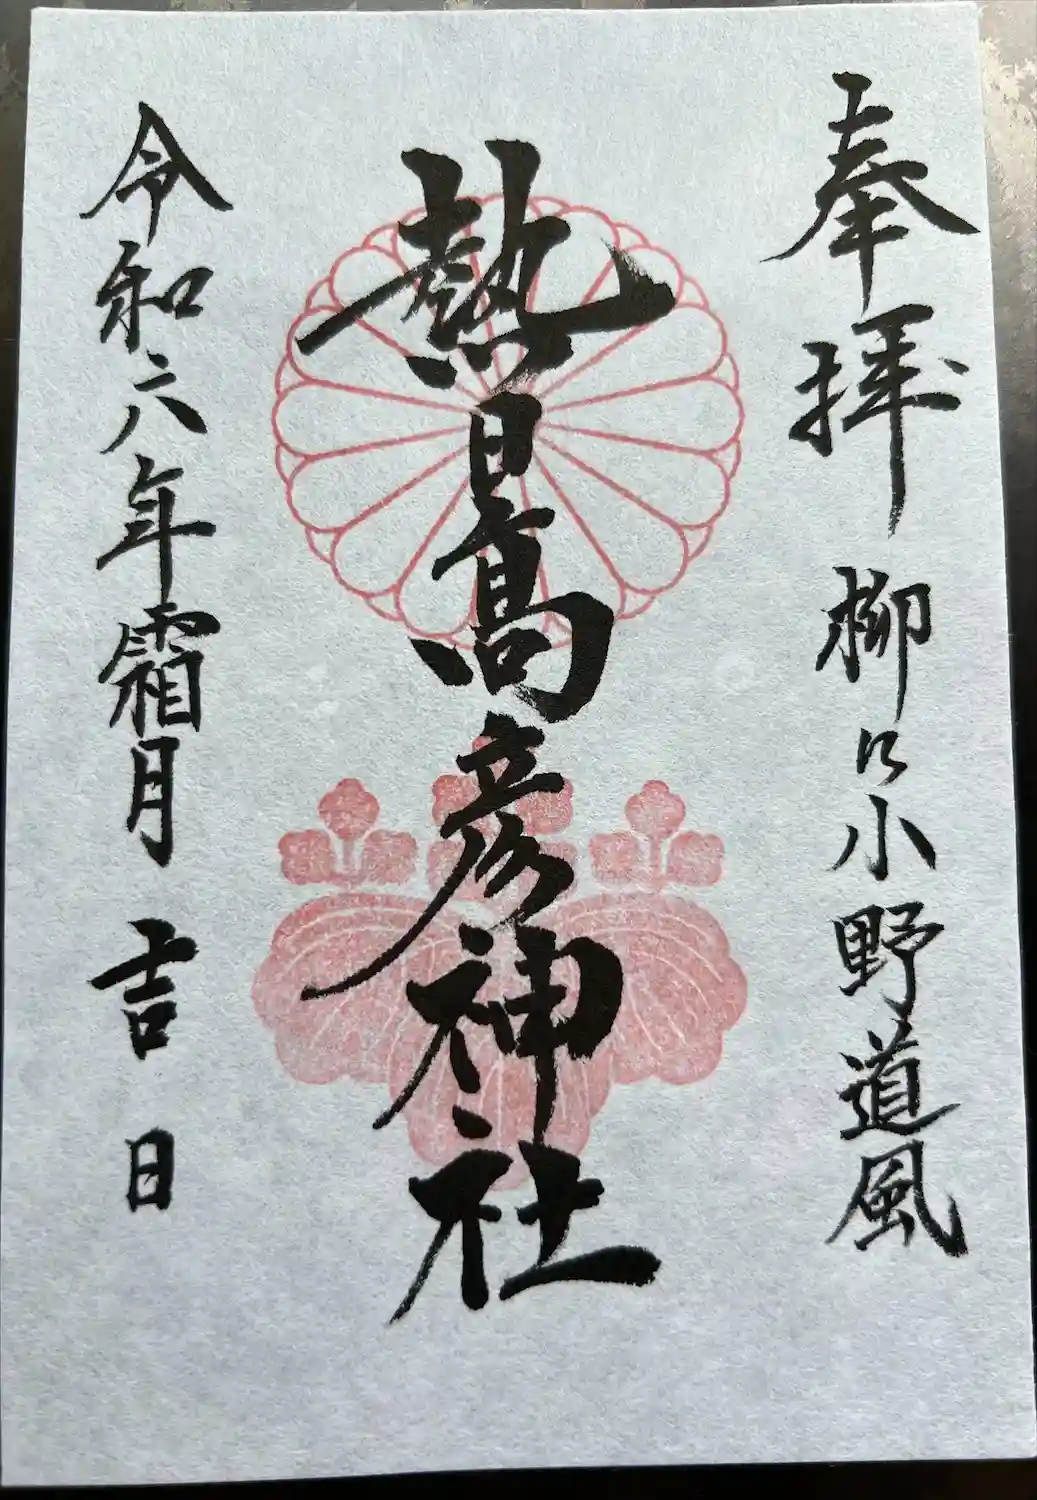 奉拝 柳に小野道風
熱日高彦神社
令和六年霜月 吉日